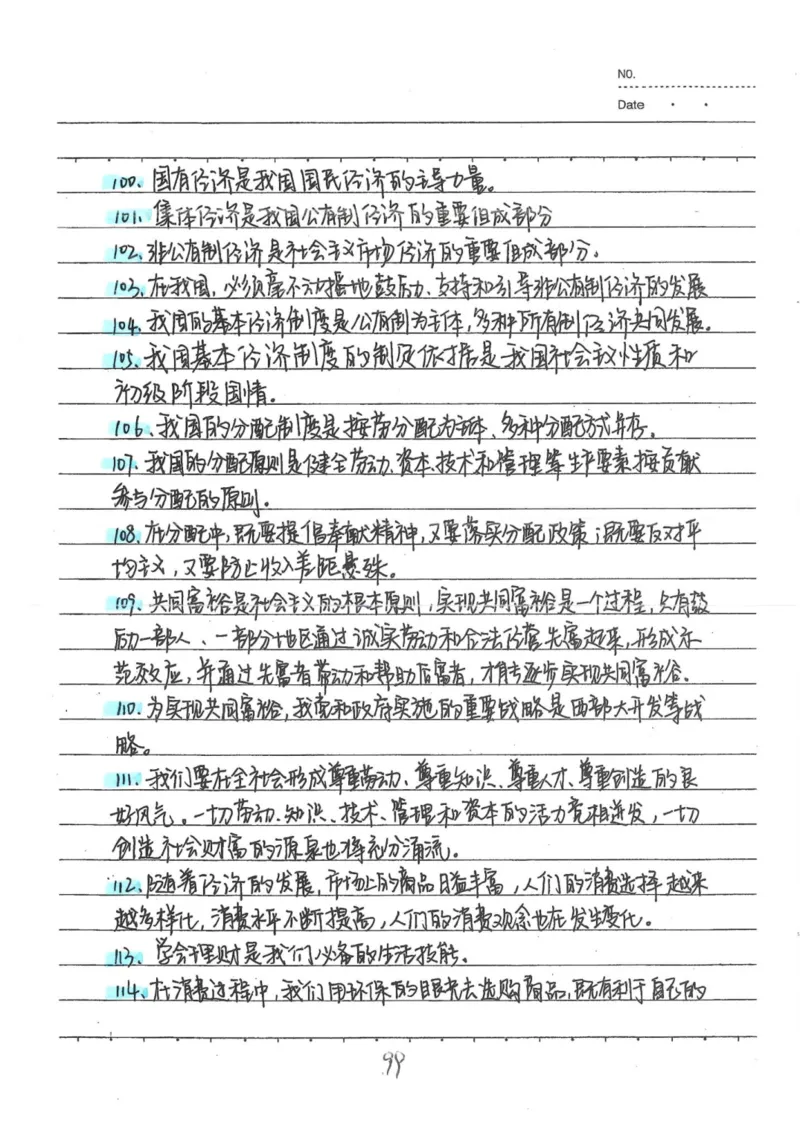 NO.
Date
100. 国有经济是我国国民经济的主导力量。
101. 集体经济是我国公有制经济的重要组成部分
102. 非公有制经济是社会主义市场经济的重要组成部分。
103. 在我国，必须毫不动摇地鼓励、支持和引导非公有制经济的发展
104. 我国的基本经济制度是公有制为主体，多种所有制经济共同发展。
105. 我国基本经济制度的制定依据是我国社会主义性质和
初级阶段国情。
106、我国的分配制度是按劳分配为主体、多种分配方式并存。
107. 我国的分配原则是健全劳动、资本、技术和管理等生产要素按贡献
参与分配的原则。
108. 在分配中，既要提倡奉献精神，又要落实分配政策；既要反对平
均主义，又要防止收入差距悬殊。
109. 共同富裕是社会主义的根本原则，实现共同富裕是一个过程，只有鼓
励一部人、一部分地区通过诚实劳动和合法经营先富起来，形成示
范效应，并通过先富者带动和帮助后富者，才能逐步实现共同富裕。
110. 为实现共同富裕，我党和政府实施的重要战略是西部大开发等战
略。
111. 我们要在全社会形成尊重劳动、尊重知识、尊重人才、尊重创造的良
好风气。一切劳动、知识、技术、管理和资本的活力竞相迸发，一切
创造社会财富的源泉也将充分涌流。
112. 随着经济的发展，市场上的商品日益丰富，人们的消费选择越来
越多样化，消费水平不断提高，人们的消费观念也在发生变化。
113. 学会理财是我们必备的生活技能。
114. 在消费过程中，我们用环保的眼光去选购商品，既有利于自己的
99